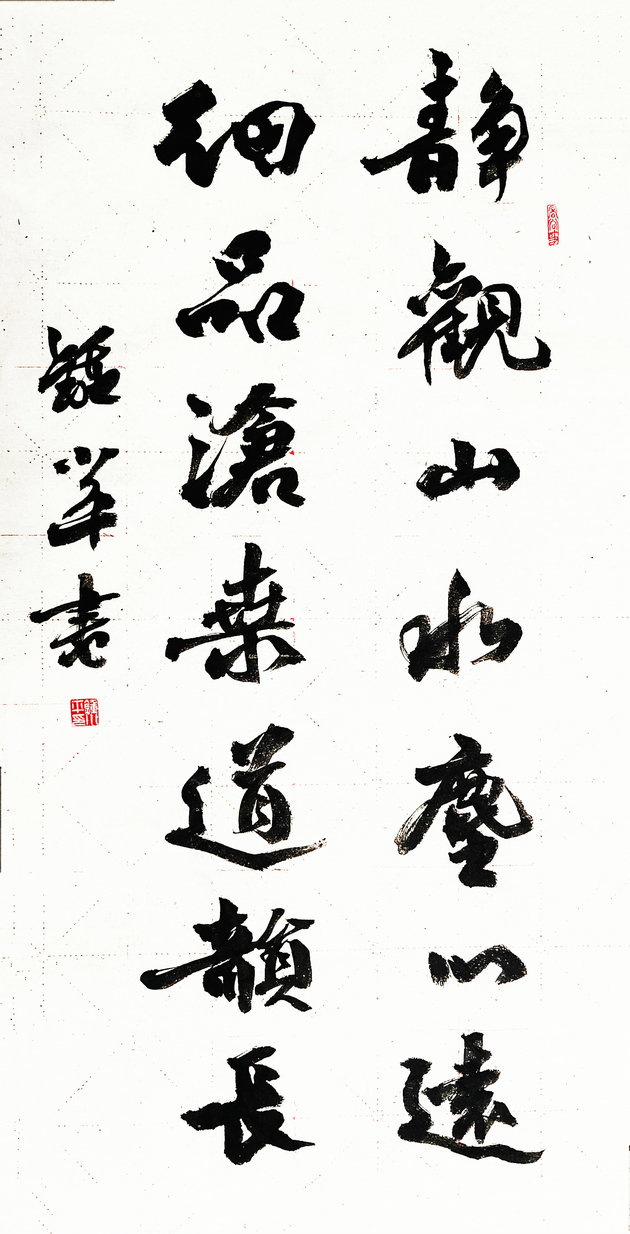 靜觀山水塵心遠
細品滄桑道韻長
鍾小平書